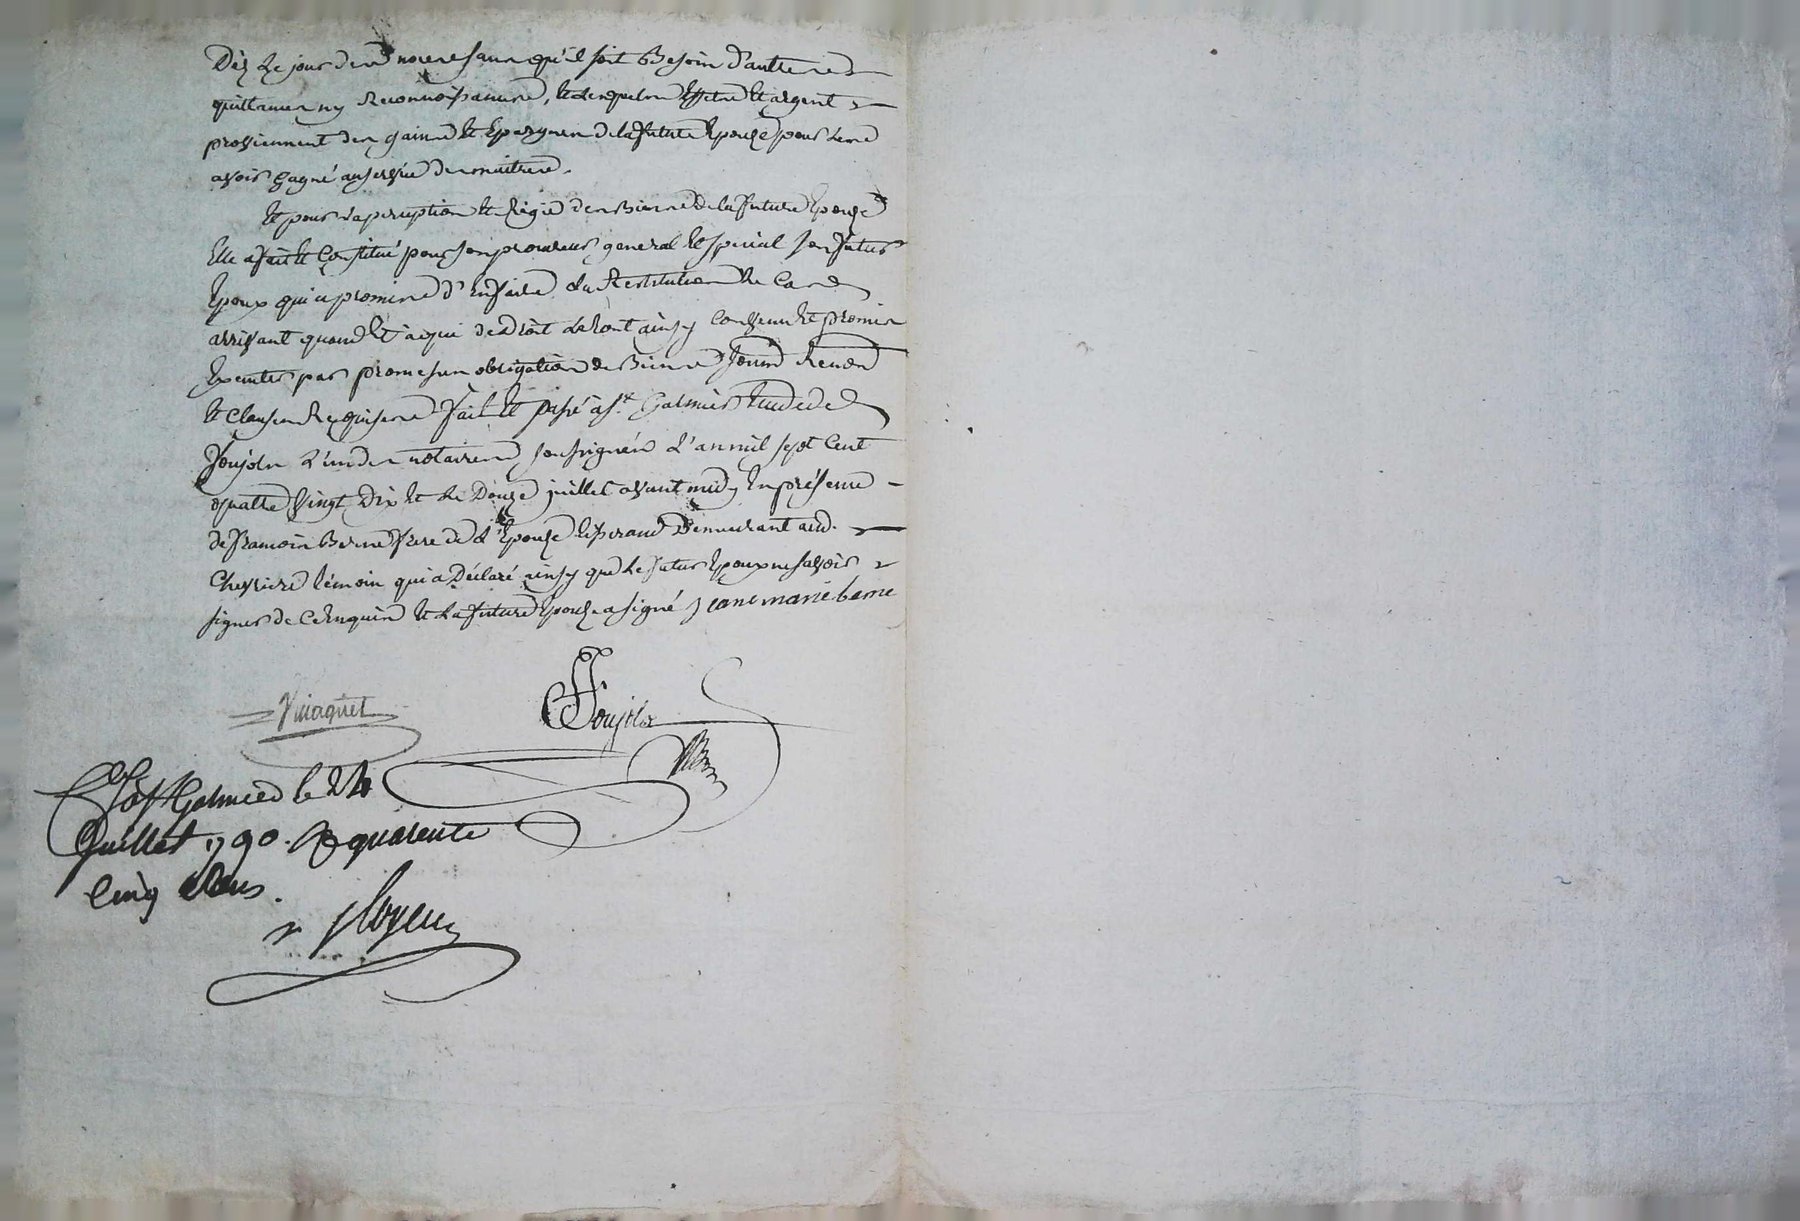 Dès le jour des noces sans qu'il soit Besoin d'autres
quittances ny Reconnoissances, Et lesquels Effets Et argent
proviennent des gains Et Epargnes de la future Epouze pour les
avoir gagné au service des maitres.
Et pour la perception Et Régie des Biens de la future Epouze
Elle a fait Et Constitué pour son procureur general Et spécial son futur
Epoux qui a promis d'En faire la Restitution le Cas
arrivant quand Et à qui de Droit le tout ainsy Convenu Et promis
Executer par promesses obligation de Biens Soumis Renon
Et Clauses Requises fait Et passé à St Galmier Etude de
Joujoln L'un des notaires soussignés L'an mil sept Cent
quatre Vingt Dix Et le Douze juillet avant midy En présence
de francois Berne frere de l'Epouze Demeurant aud.
Chevrieres témoin qui a Déclaré ainsy que le futur Epoux ne savoir
signer de ce Enquis Et La future Epouze a signé jeane marie berne
Vinaquet
C à St Galmier le 24
Juillet 1790. R quarente
Cinq sous.